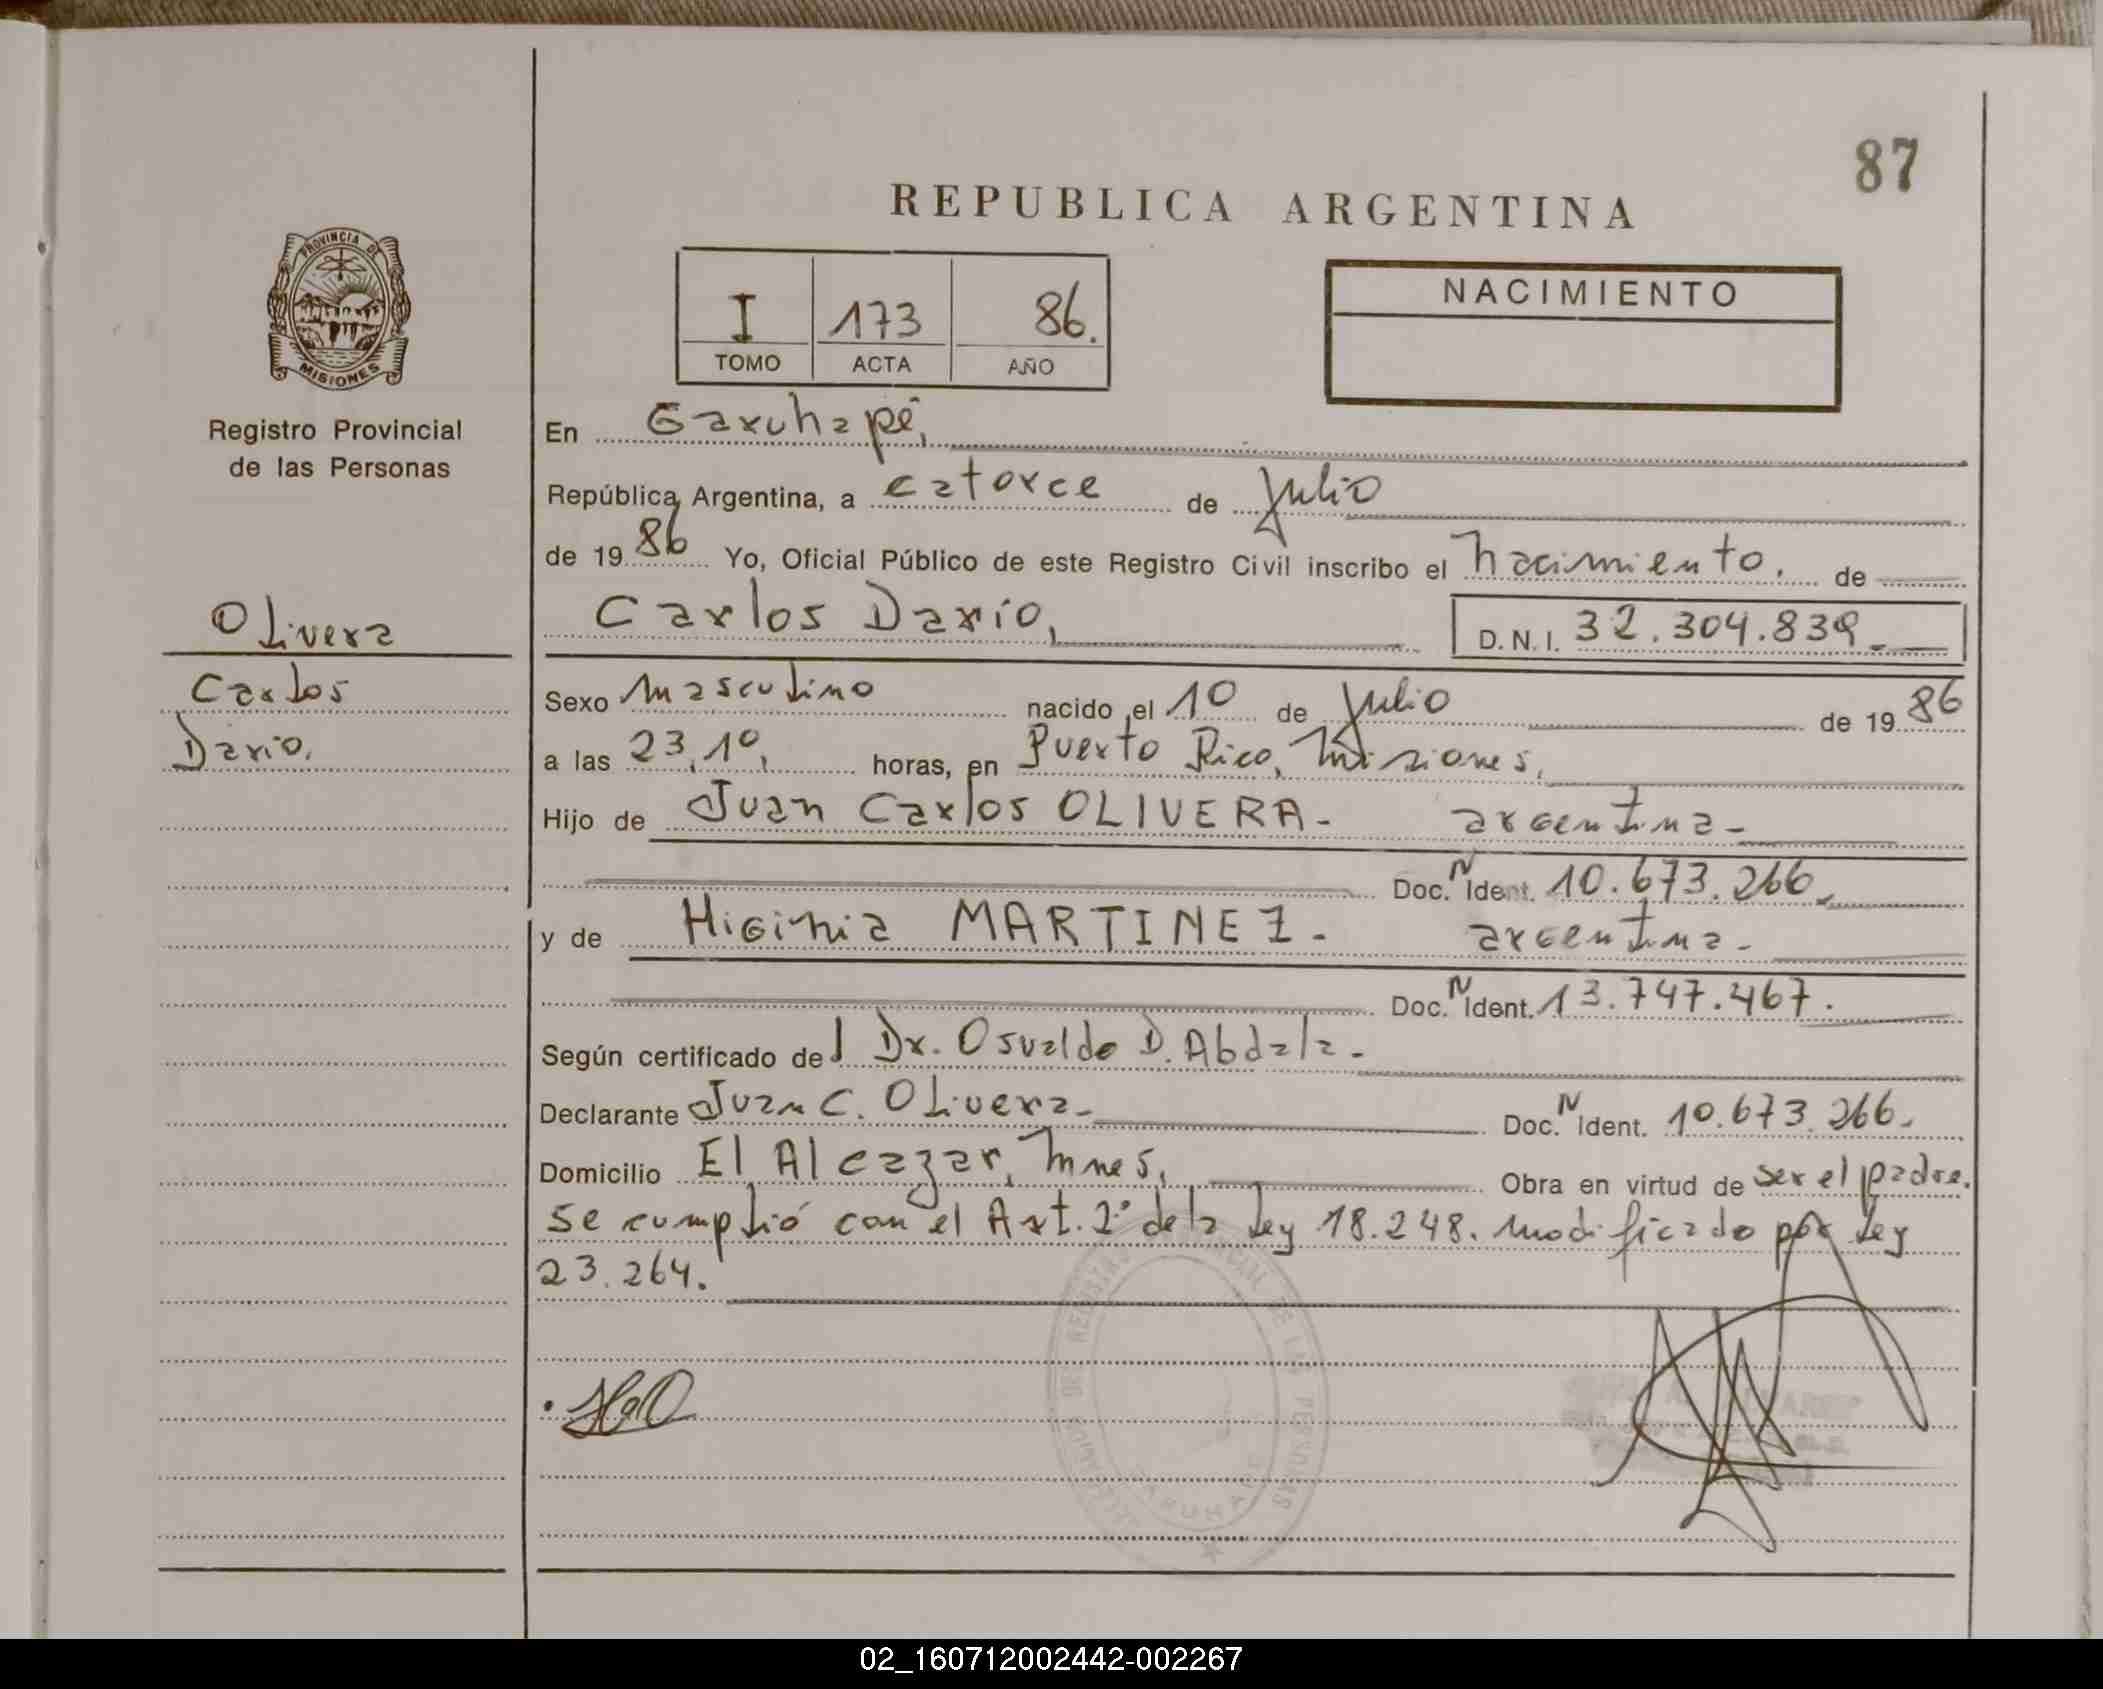 87
REPUBLICA ARGENTINA
PROVINCIA DE
MISIONES
Registro Provincial
de las Personas
I 173 86.
TOMO ACTA AÑO
NACIMIENTO
En Garuhapé,
República Argentina, a catorce de Julio
de 1986 Yo, Oficial Público de este Registro Civil inscribo el nacimiento. de
Carlos Darío, D.N.I. 32.304.839
Olivera
Carlos
Darío.
Sexo masculino nacido el 10 de Julio de 1986
a las 23,10, horas, en Puerto Rico, Misiones,
Hijo de Juan Carlos OLIVERA. argentina
Doc. N Ident. 10.673.266.
y de Higinia MARTINEZ. argentina.
Doc. N Ident. 13.747.467.
Según certificado del Dr. Osvaldo D. Abdala.
Declarante Juan C. Olivera. Doc. N Ident. 10.673.266.
Domicilio El Alcazar, Mnes, Obra en virtud de ser el padre.
Se cumplió con el Art. 2° de la Ley 18.248. modificado por Ley
23.264.
02_160712002442-002267